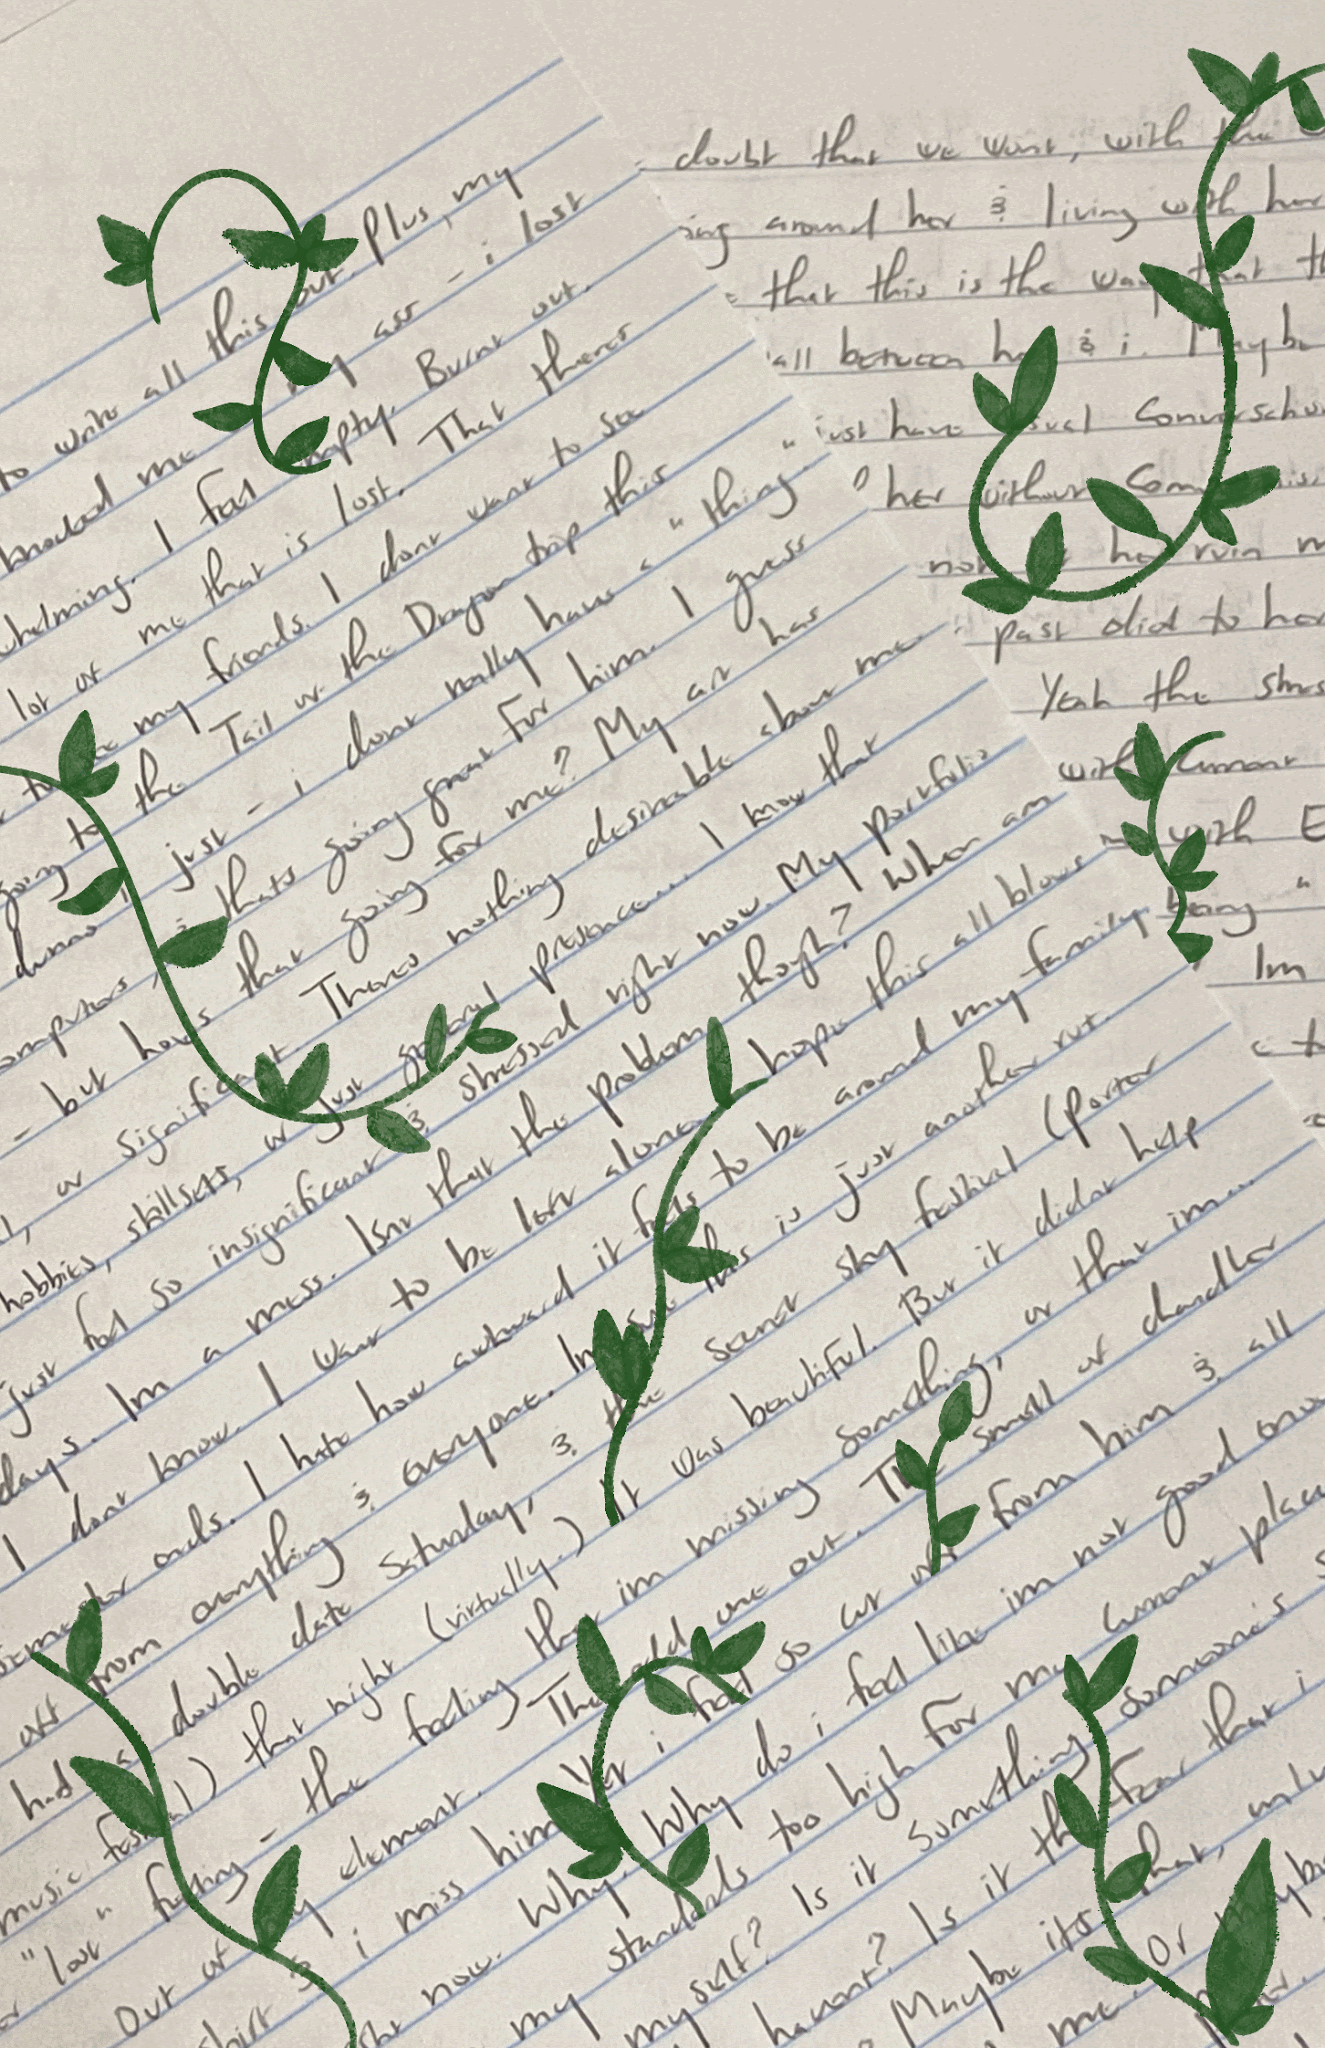 to write all this out. Plus, my
knocked me my ass - i lost
whelming. I feel empty. Burnt out.
lot of me that is lost. That theres
my friends. I dont want to see
going to the Tail of the Dragon trip this
dunno, just - i dont really have a "thing".
computers, & thats going great for him. I guess
- but hows that going for me? My art has
or significant. Theres nothing desireable about me.
hobbies, skillsets, or just general presence... I know that
just feel so insignificant & stressed right now. My portfolio
days. Im a mess. Isnt that the problem though? When am
I dont know. I want to be left alone. I hope this all blows
ends. I hate how awkward it feels to be around my family
off from everything & everyone. Im sure this is just another rut.
had a double date Saturday, & the secret sky festival (porter
music festival) that night (virtually.) It was beautiful. But it didnt help
"lost" feeling - the feeling that im missing something, or that im...
Out of my element. The odd one out. The smell of chandler
shirt & i miss him. Yet i feel so cut off from him & all
right now. Why. Why do i feel like im not good enou
my standards too high for my current plac
my self? Is it something someone's
havent? Is it the fear that i
Maybe its that, only
me. Or maybe
doubt that we wont, with the
ing around her & living with her
that this is the way that th
all between her & i. Maybe
just have usual conversation
her without
not let her ruin m
past did to her
Yeah the stress
with current
with E
being "
Im